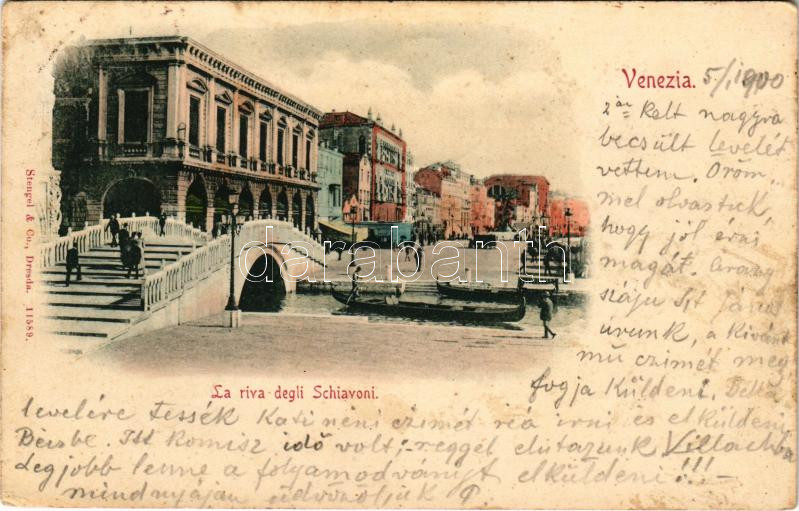 Venezia. 5/1 1900
2án kelt nagyra
becsült levelét
vettem. Öröm
mel olvastuk,
hogy jól érzi
magát. Arany
szájú Szt János
úrunk, a kívánt
mű czimét meg
fogja küldeni.
levelére tessék Kati néni czimét reá irni és elküldeni
Bécsbe. Itt komisz idő volt, reggel elutazunk Villachba
Legjobb lenne a folyamodványt elküldeni!!!—
mindnyájan üdvözöljük
La riva degli Schiavoni.
Stengel & Co., Dresda. 11589.
darabanth.com